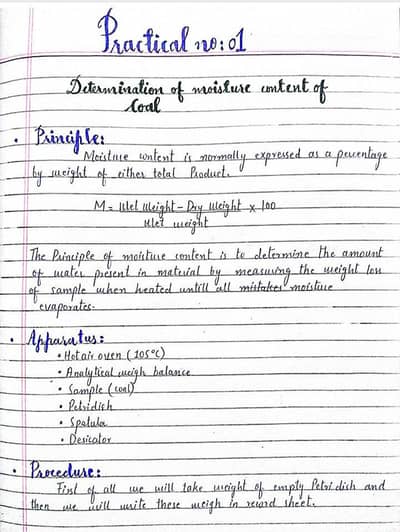 Practical no:01
Determination of moisture content of
Coal
• Principle:
Moisture content is normally expressed as a percentage
by weight of either total Product.
M = Wet Weight - Dry Weight x 100
Wet weight
The Principle of moisture content is to determine the amount
of water present in material by measuring the weight loss
of sample when heated untill all mistakes moisture
evaporates.
• Apparatus:
• Hot air oven (105°C)
• Analytical weigh balance
• Sample (coal)
• Petridish
• Spatula
• Desicator
• Procedure:
First of all we will take weight of empty Petri dish and
then we will write these weigh in record sheet.